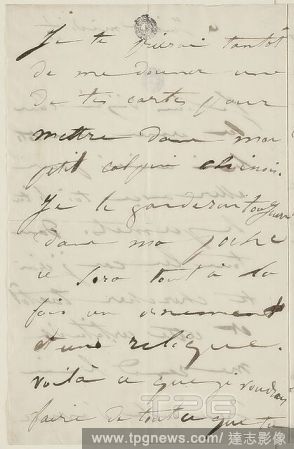 Je te prierai tantôt
de me donner une
de tes cartes pour
mettre dans mon
petit calepin chinois.
Je le garderai toujours
dans ma poche
ce sera tout à la
fois un ornement
et une relique.
voilà ce que je voudrais
faire de tout ce que tu
TPG
www.tpgnews.com/達志影像